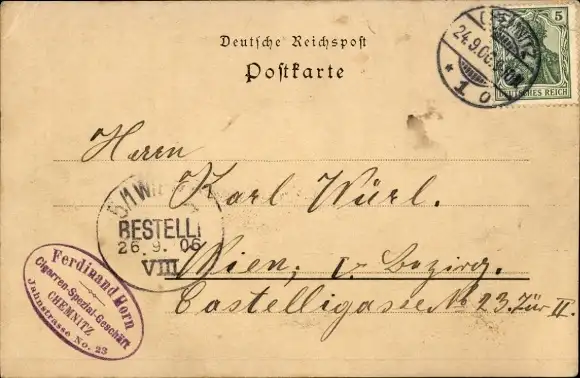 Deutsche Reichspost
Postkarte
CHEMNITZ
24.9.06
* 1 o
5
DEUTSCHES REICH
Herrn
Karl Würl.
Wien, V. Bezirg.
Castelligasse No 23. Tür II.
5/1 WI
BESTELLT
26.9.06
VIII
Ferdinand Horn
Cigarren-Spezial-Geschäft
CHEMNITZ
Jahnstrasse No. 23